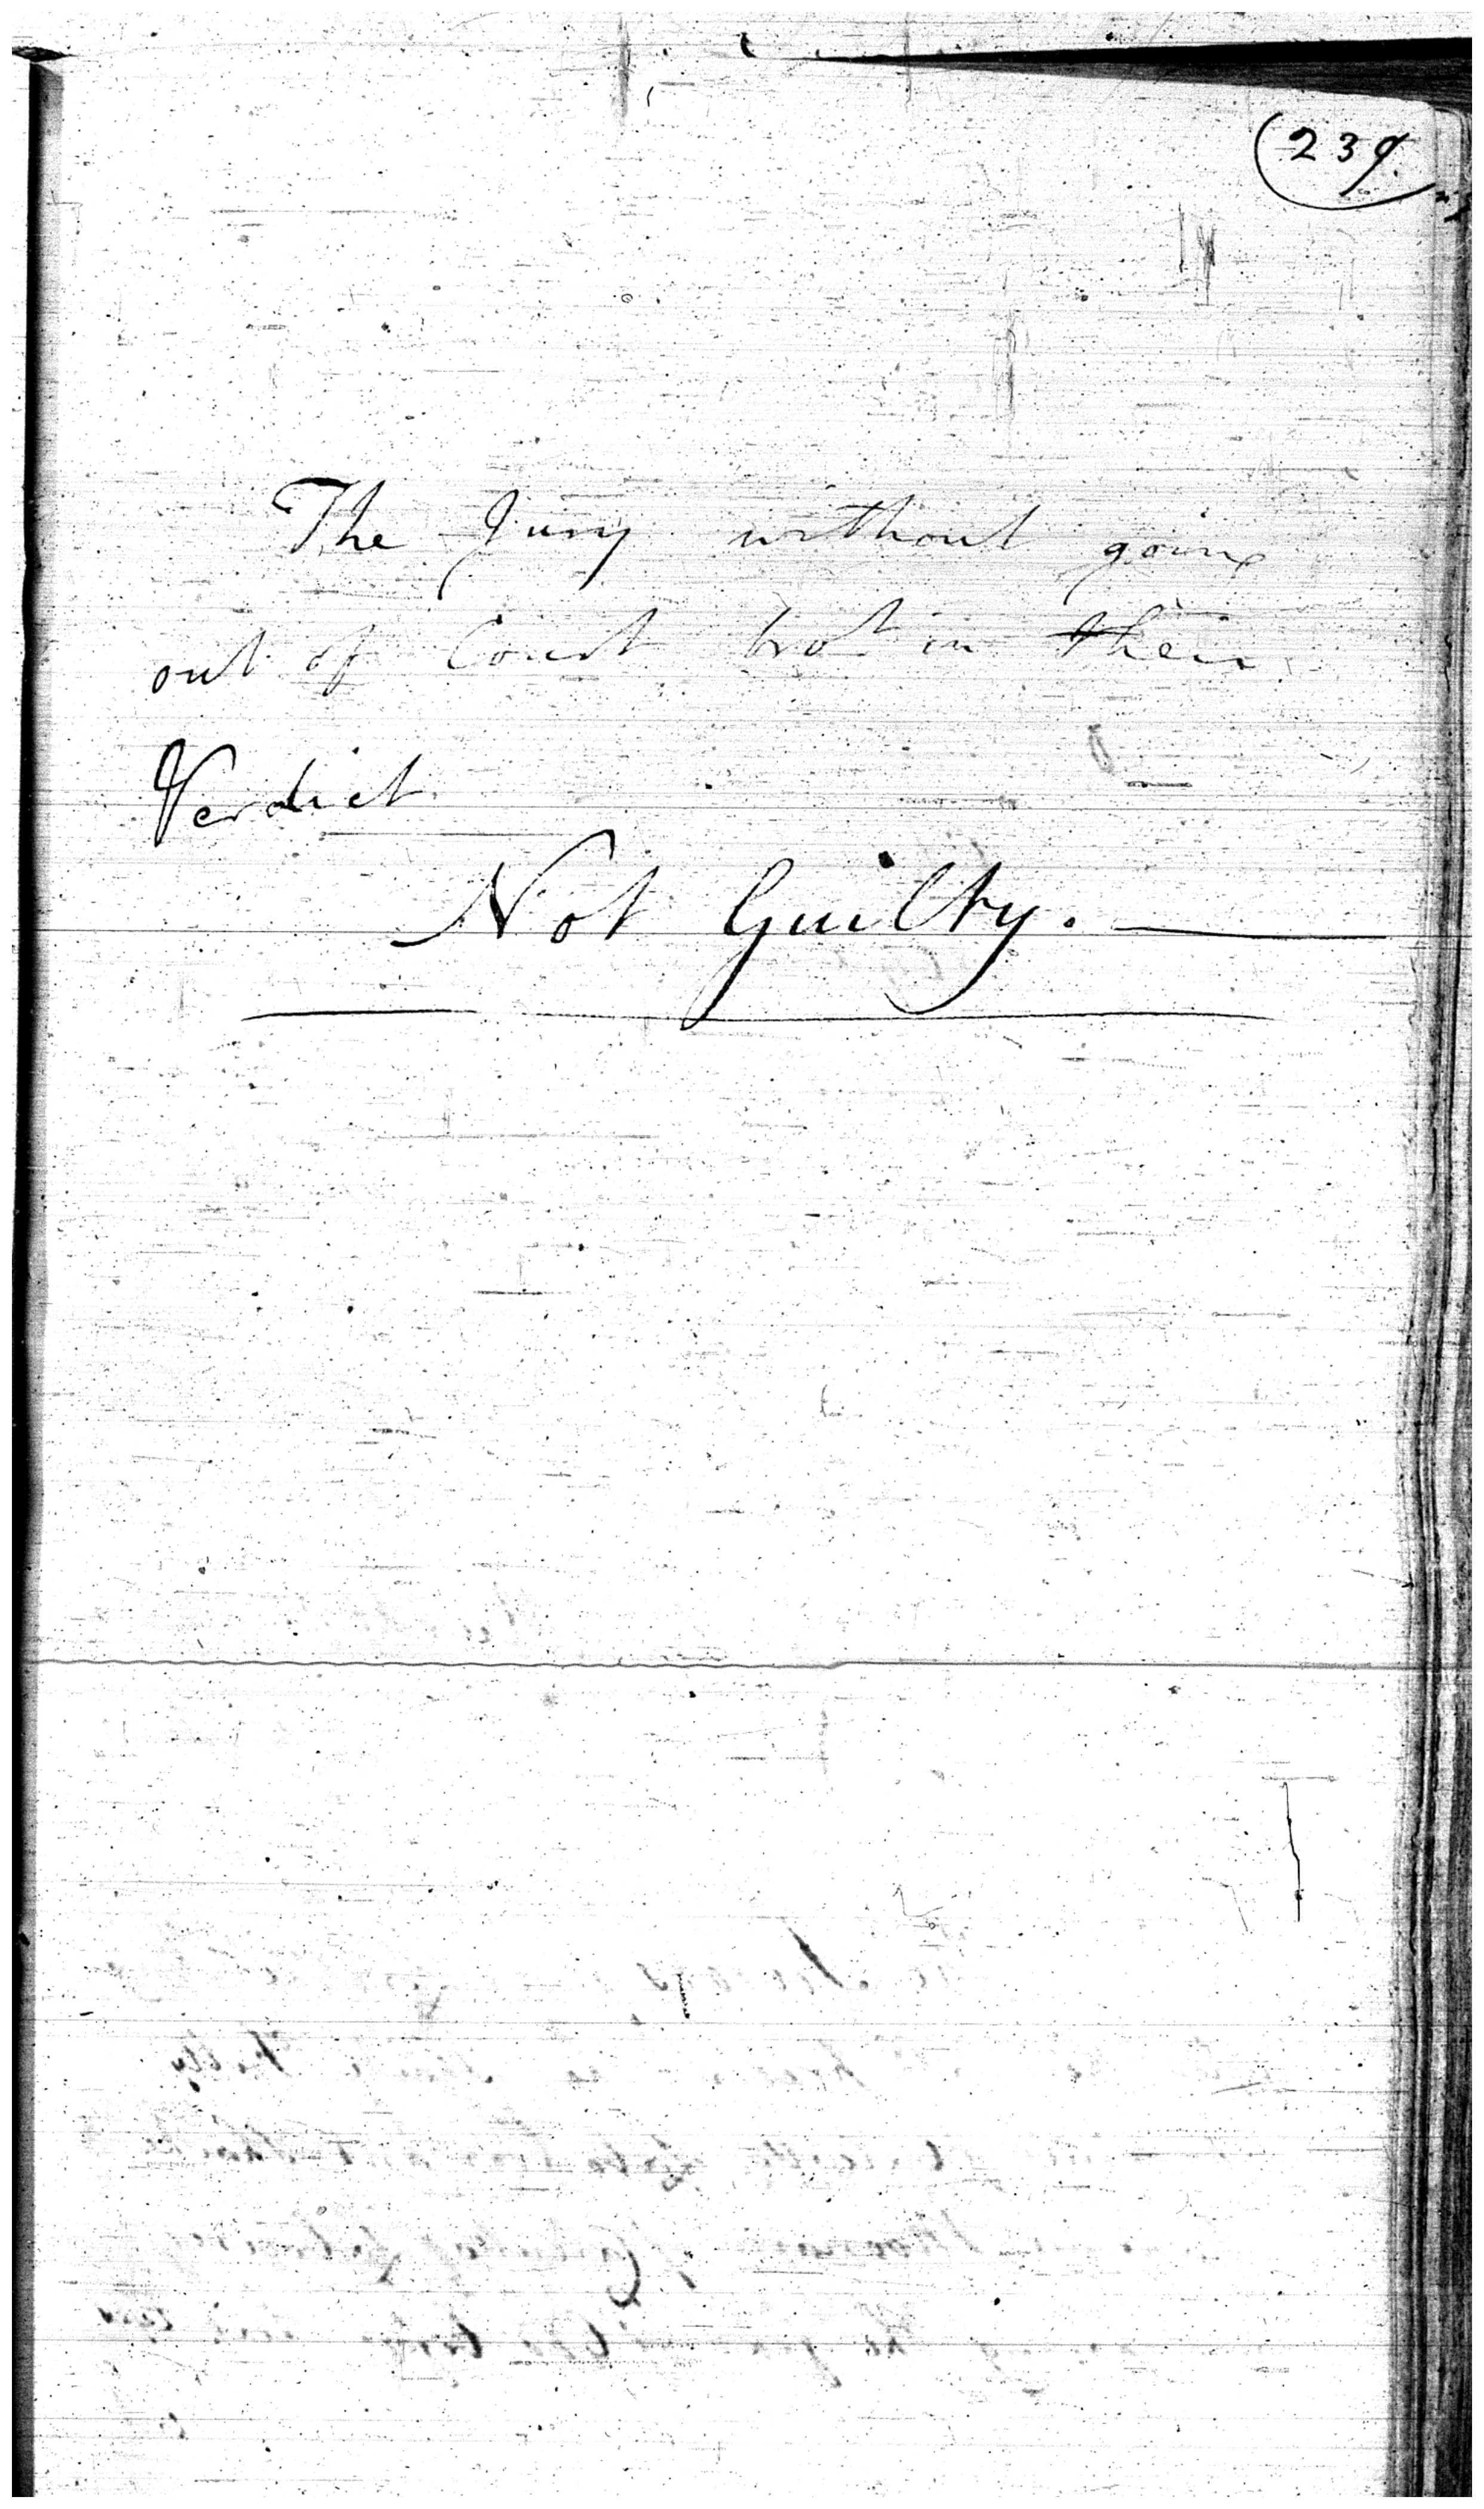 239.
The Jury without going
out of Court brot in their
Verdict
Not Guilty.